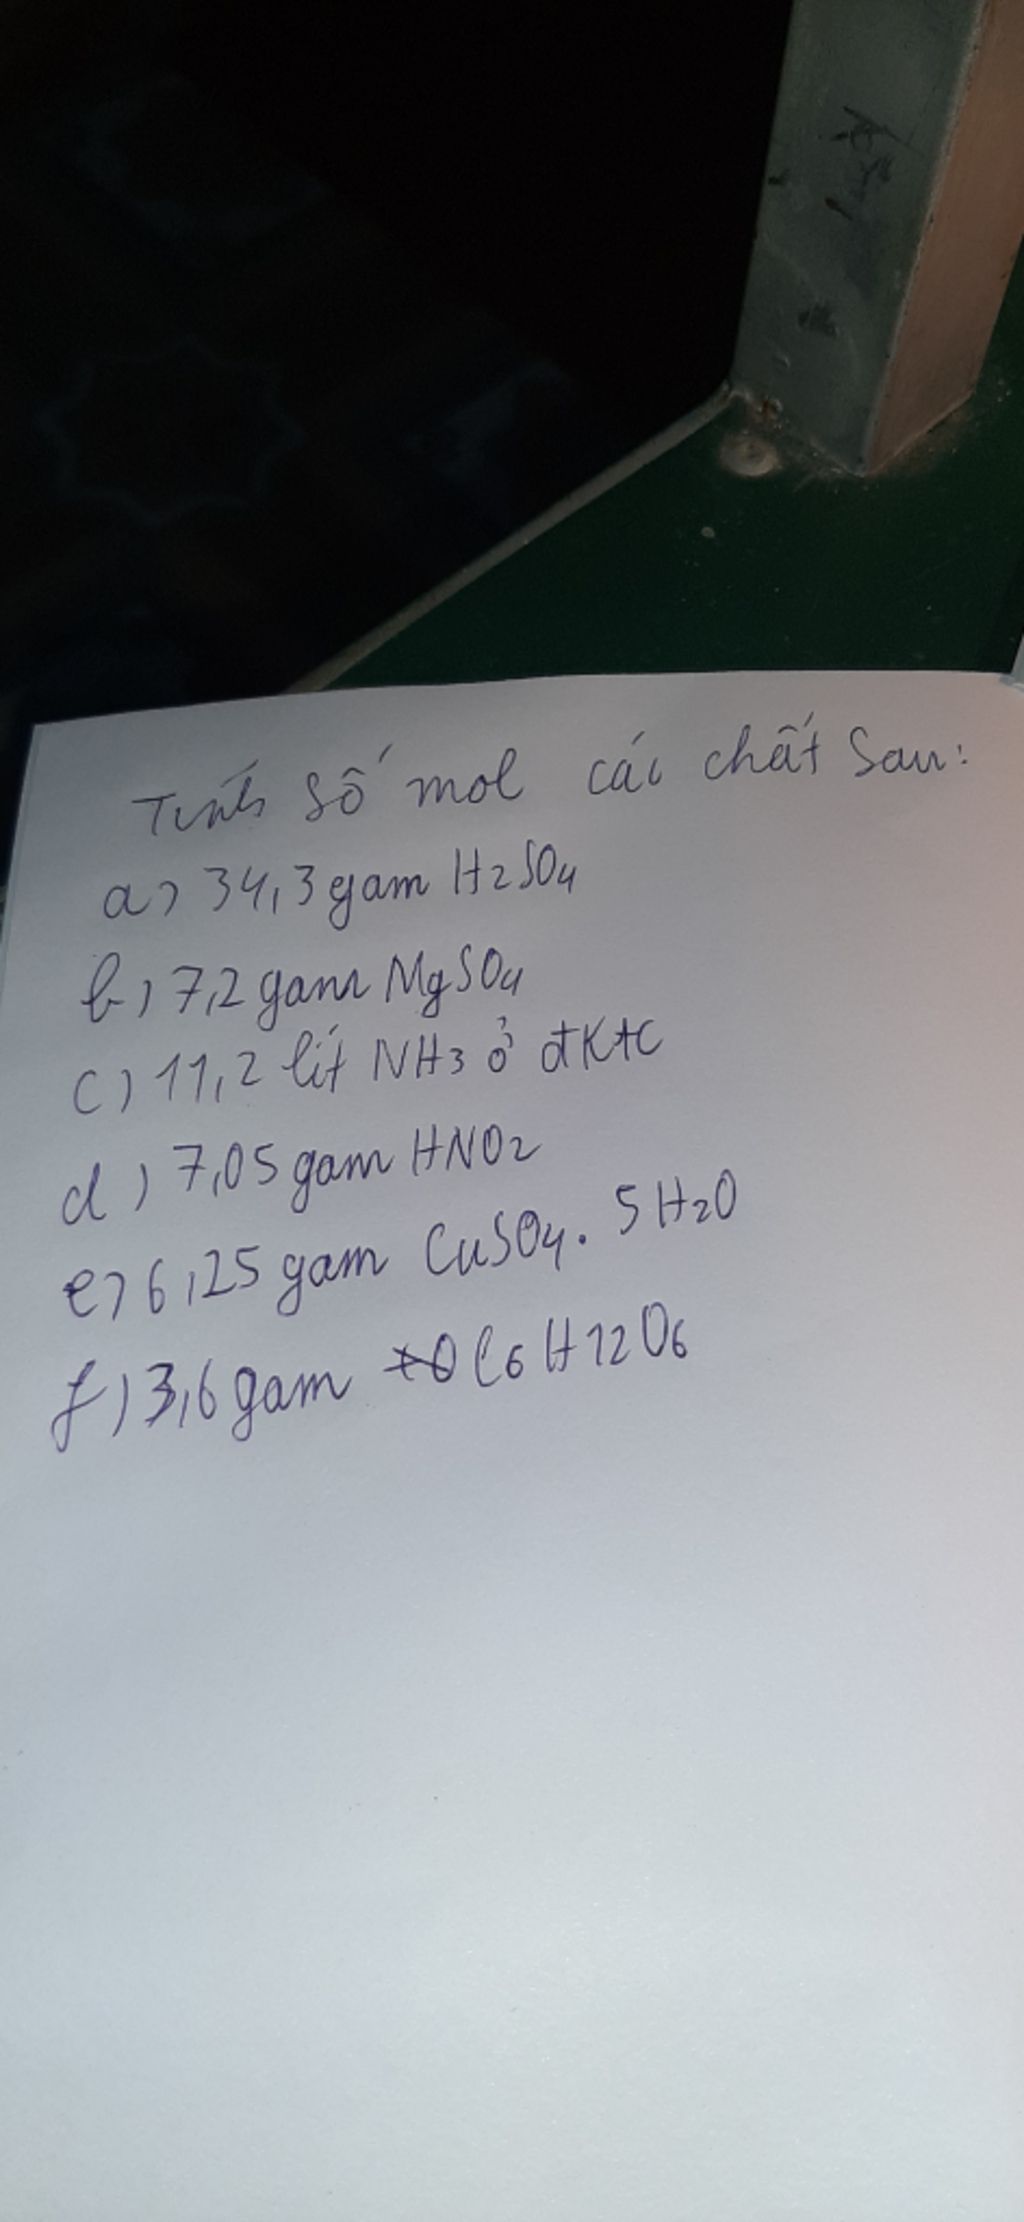 Tính số mol các chất sau:
a) 34,3 gam H2SO4
b) 7,2 gam MgSO4
c) 11,2 lít NH3 ở đktc
d) 7,05 gam HNO2
e) 6,25 gam CuSO4. 5H2O
f) 3,6 gam C6H12O6